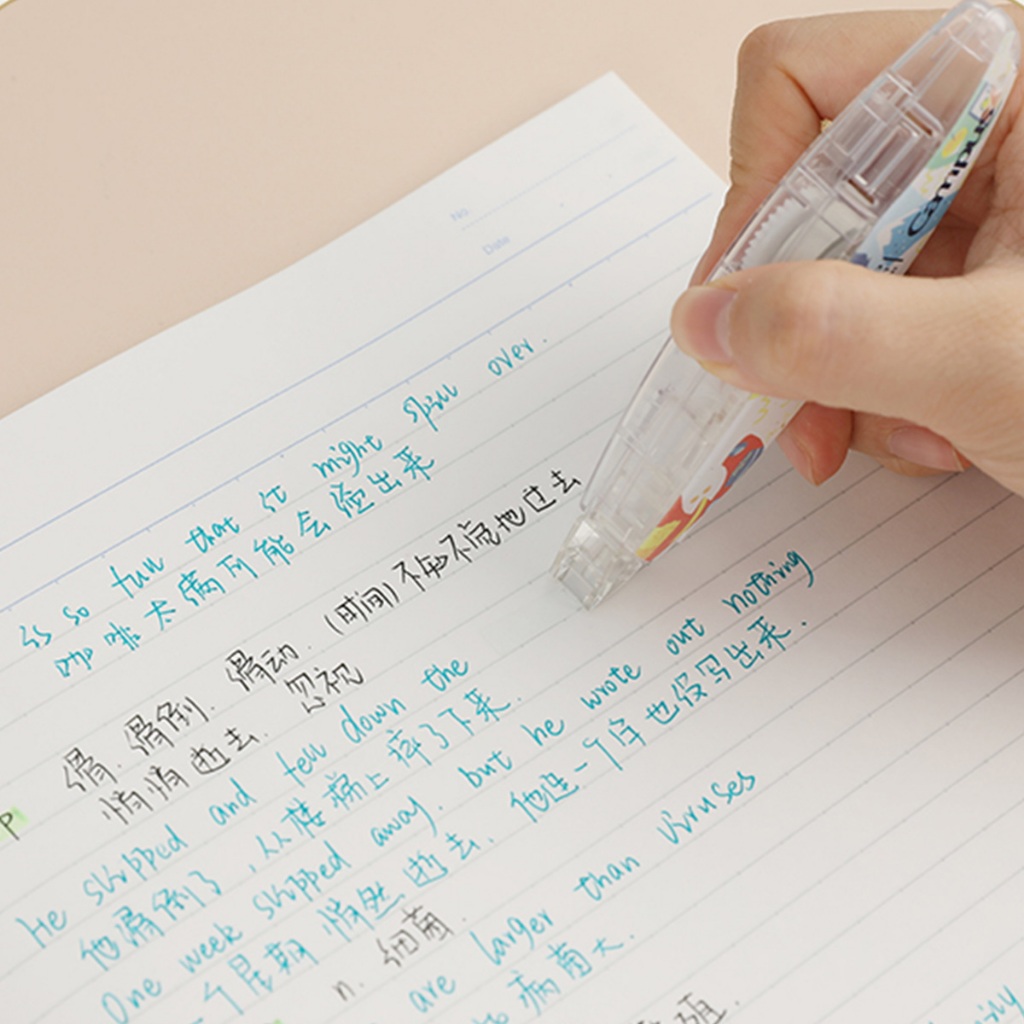 No.
Date
is so full that it might spill over.
咖啡太满可能会溢出来
滑. 滑倒. 滑动. (时间)不知不觉地过去
悄悄逝去. 忽视
p
He slipped and fell down the
他滑倒了,从楼梯上摔了下来.
One week slipped away. but he wrote out nothing
一个星期悄然逝去. 他连一个字也没写出来.
n. 细菌.
are larger than viruses
病菌大.
殖.
Campus